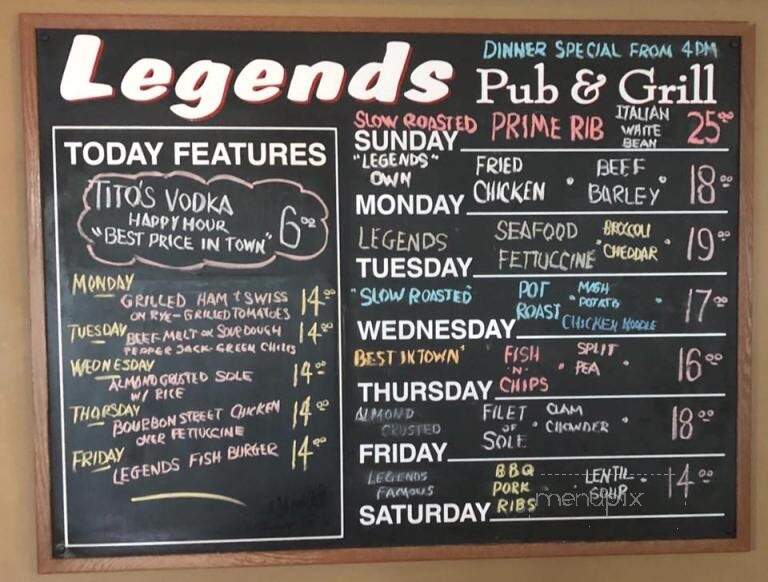 Legends
DINNER SPECIAL FROM 4PM
Pub & Grill
TODAY FEATURES
TITO'S VODKA
HAPPY HOUR
"BEST PRICE IN TOWN" 6.00
MONDAY
GRILLED HAM & SWISS
ON RYE-GRILLED TOMATOES 14.00
TUESDAY
BEEF MELT ON SOURDOUGH
PEPPER JACK-GREEN CHILIS 14.00
WEDNESDAY
ALMOND CRUSTED SOLE
W/ RICE 14.00
THURSDAY
BOURBON STREET CHICKEN
OVER FETTUCCINE 14.00
FRIDAY
LEGENDS FISH BURGER 14.00
SLOW ROASTED PRIME RIB ITALIAN WHITE BEAN 25.00
SUNDAY
"LEGENDS" OWN FRIED CHICKEN • BEEF BARLEY • 18.00
MONDAY
LEGENDS SEAFOOD FETTUCCINE • BROCCOLI CHEDDAR • 19.00
TUESDAY
"SLOW ROASTED" POT ROAST • MASH POTATO • CHICKEN NOODLE 17.00
WEDNESDAY
BEST IN TOWN" FISH 'N' CHIPS • SPLIT PEA • 16.00
THURSDAY
ALMOND CRUSTED FILET OF SOLE • CLAM CHOWDER • 18.00
FRIDAY
LEGENDS FAMOUS BBQ PORK RIBS LENTIL SOUP • 14.00
SATURDAY
menupix